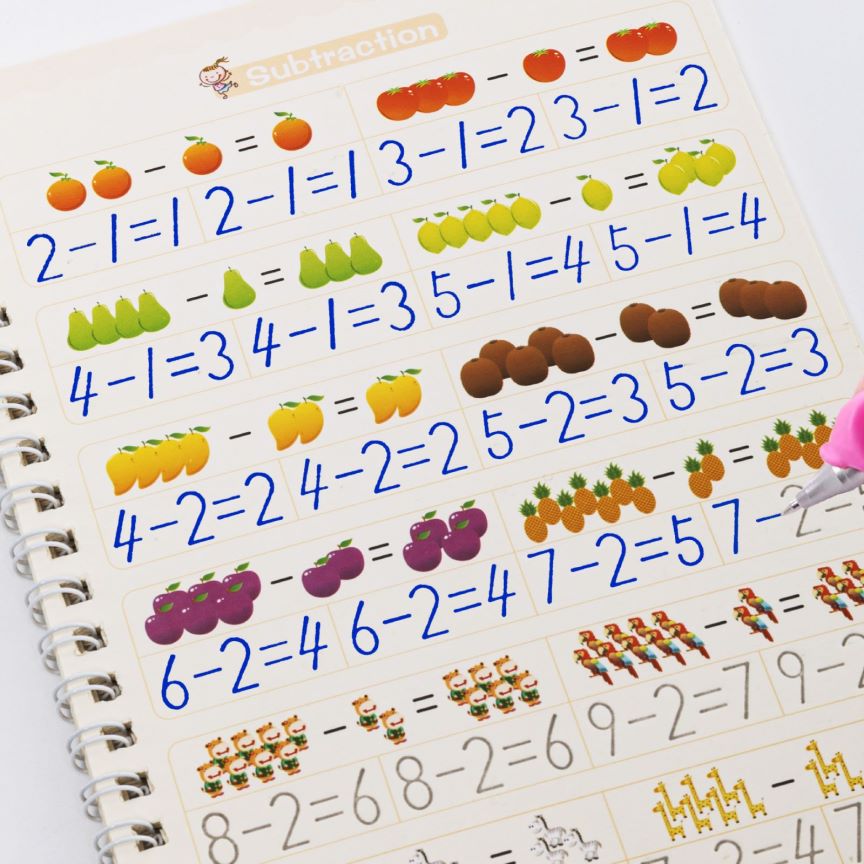 Subtraction
− = − =
2−1=1 2−1=1 3−1=2 3−1=2
− = − =
4−1=3 4−1=3 5−1=4 5−1=4
− = − =
4−2=2 4−2=2 5−2=3 5−2=3
− = − =
6−2=4 6−2=4 7−2=5 7−2−
− = − =
8−2=6 8−2=6 9−2=7 9−2
= −
−2=4 7